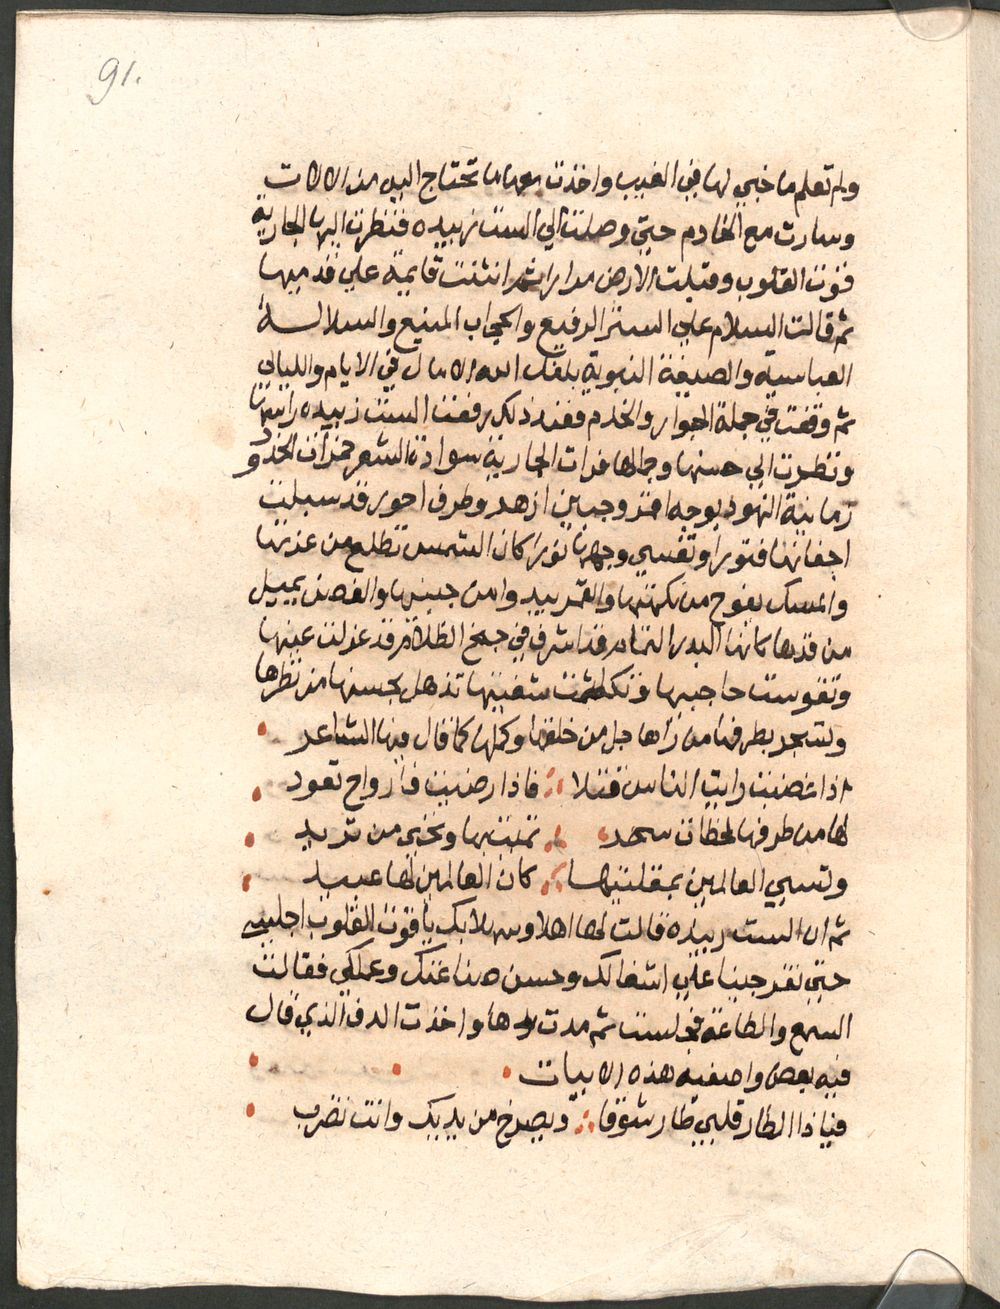 91.
ولم تعلم ما خبي لها في الغيب واخذت معها ما تحتاج اليه من الالات
وسارت مع الخادم حتي وصلت الي الست زبيده فنظرت اليها الجارية
قوت القلوب وقبلت الارض مرارا ثم انثنت قايمة علي قدميها
ثم قالت السلام علي الستر الرفيع والحجاب المنيع والسلالة
العباسية والصيغة النبوية بلغك الله الامال في الايام والليالي
ثم وقفت في جملة الجوار والخدم فعند ذلك رفعت الست زبيده راسها
ونظرت الي حسنها وجمالها فرات الجارية سوادة الشعر حمرآت الخدود
رمانية النهود بوجه اقمر وجبين ازهر وطرف احور قد سبلت
اجفانها فتورا وتغشي وجهها نورا كان الشمس تطلع من غرتها
والمسك يفوح من نكهتها والقمر يبدوا من جبينها والغصن يميل
من قدها كانها البدر التمام قد اشرق في جنح الظلام قد غزلت عينها
وتقوست حاجبها وتكلثمت شفتيها تذهل بحسنها من نظرها
وتسحر بطرفها من راها جل من خلقها وكملها كما قال فيها الشاعر
اذا غضبت رايت الناس قتلا فاذا رضيت فارواح تعود
لها من طرفها لحظات سحر تميت بها وتحيي من تريد
وتسبي العالمين بمقلتيها كان العالمين لها عبيد
ثم ان الست زبيده قالت لها اهلا وسهلا بك يا قوت القلوب اجلسي
حتي نتفرجينا علي اشغالك وحسن صناعتك وعملكي فقالت
السمع والطاعة فجلست ثم مدت يدها واخذت الدف الذي قال
فيه بعض واصفيه هذه الابيات
فيا ذا الطار قلبي طار شوقا ويصرخ من يديك وانت تضرب